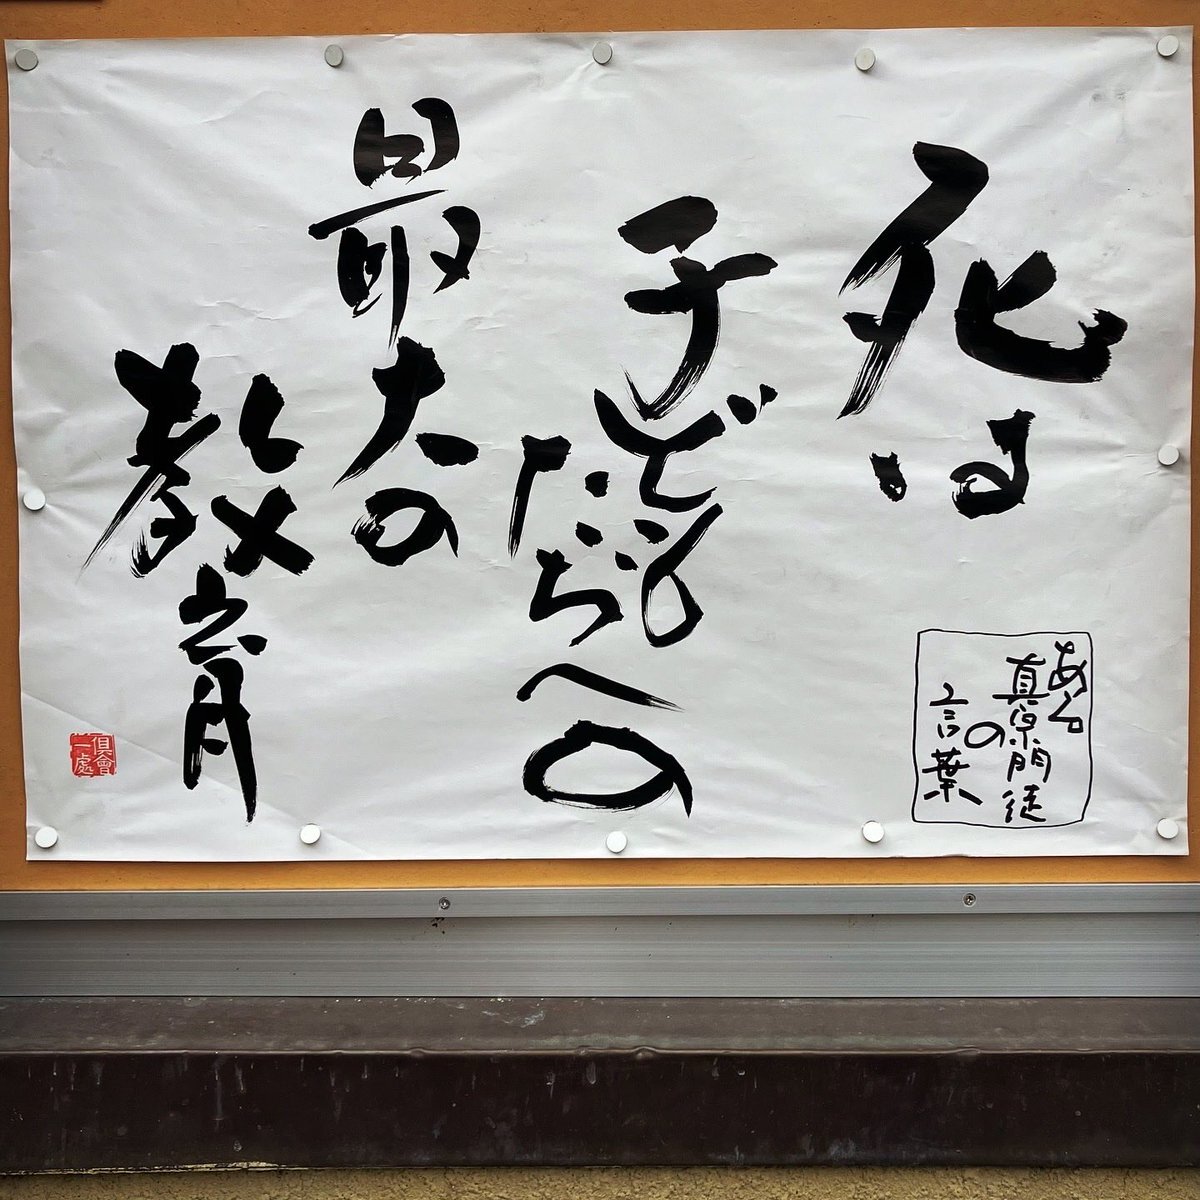 死は
子ども
たちへの
最大の
教育
ある
真宗門徒
の
言葉
倶會
一處